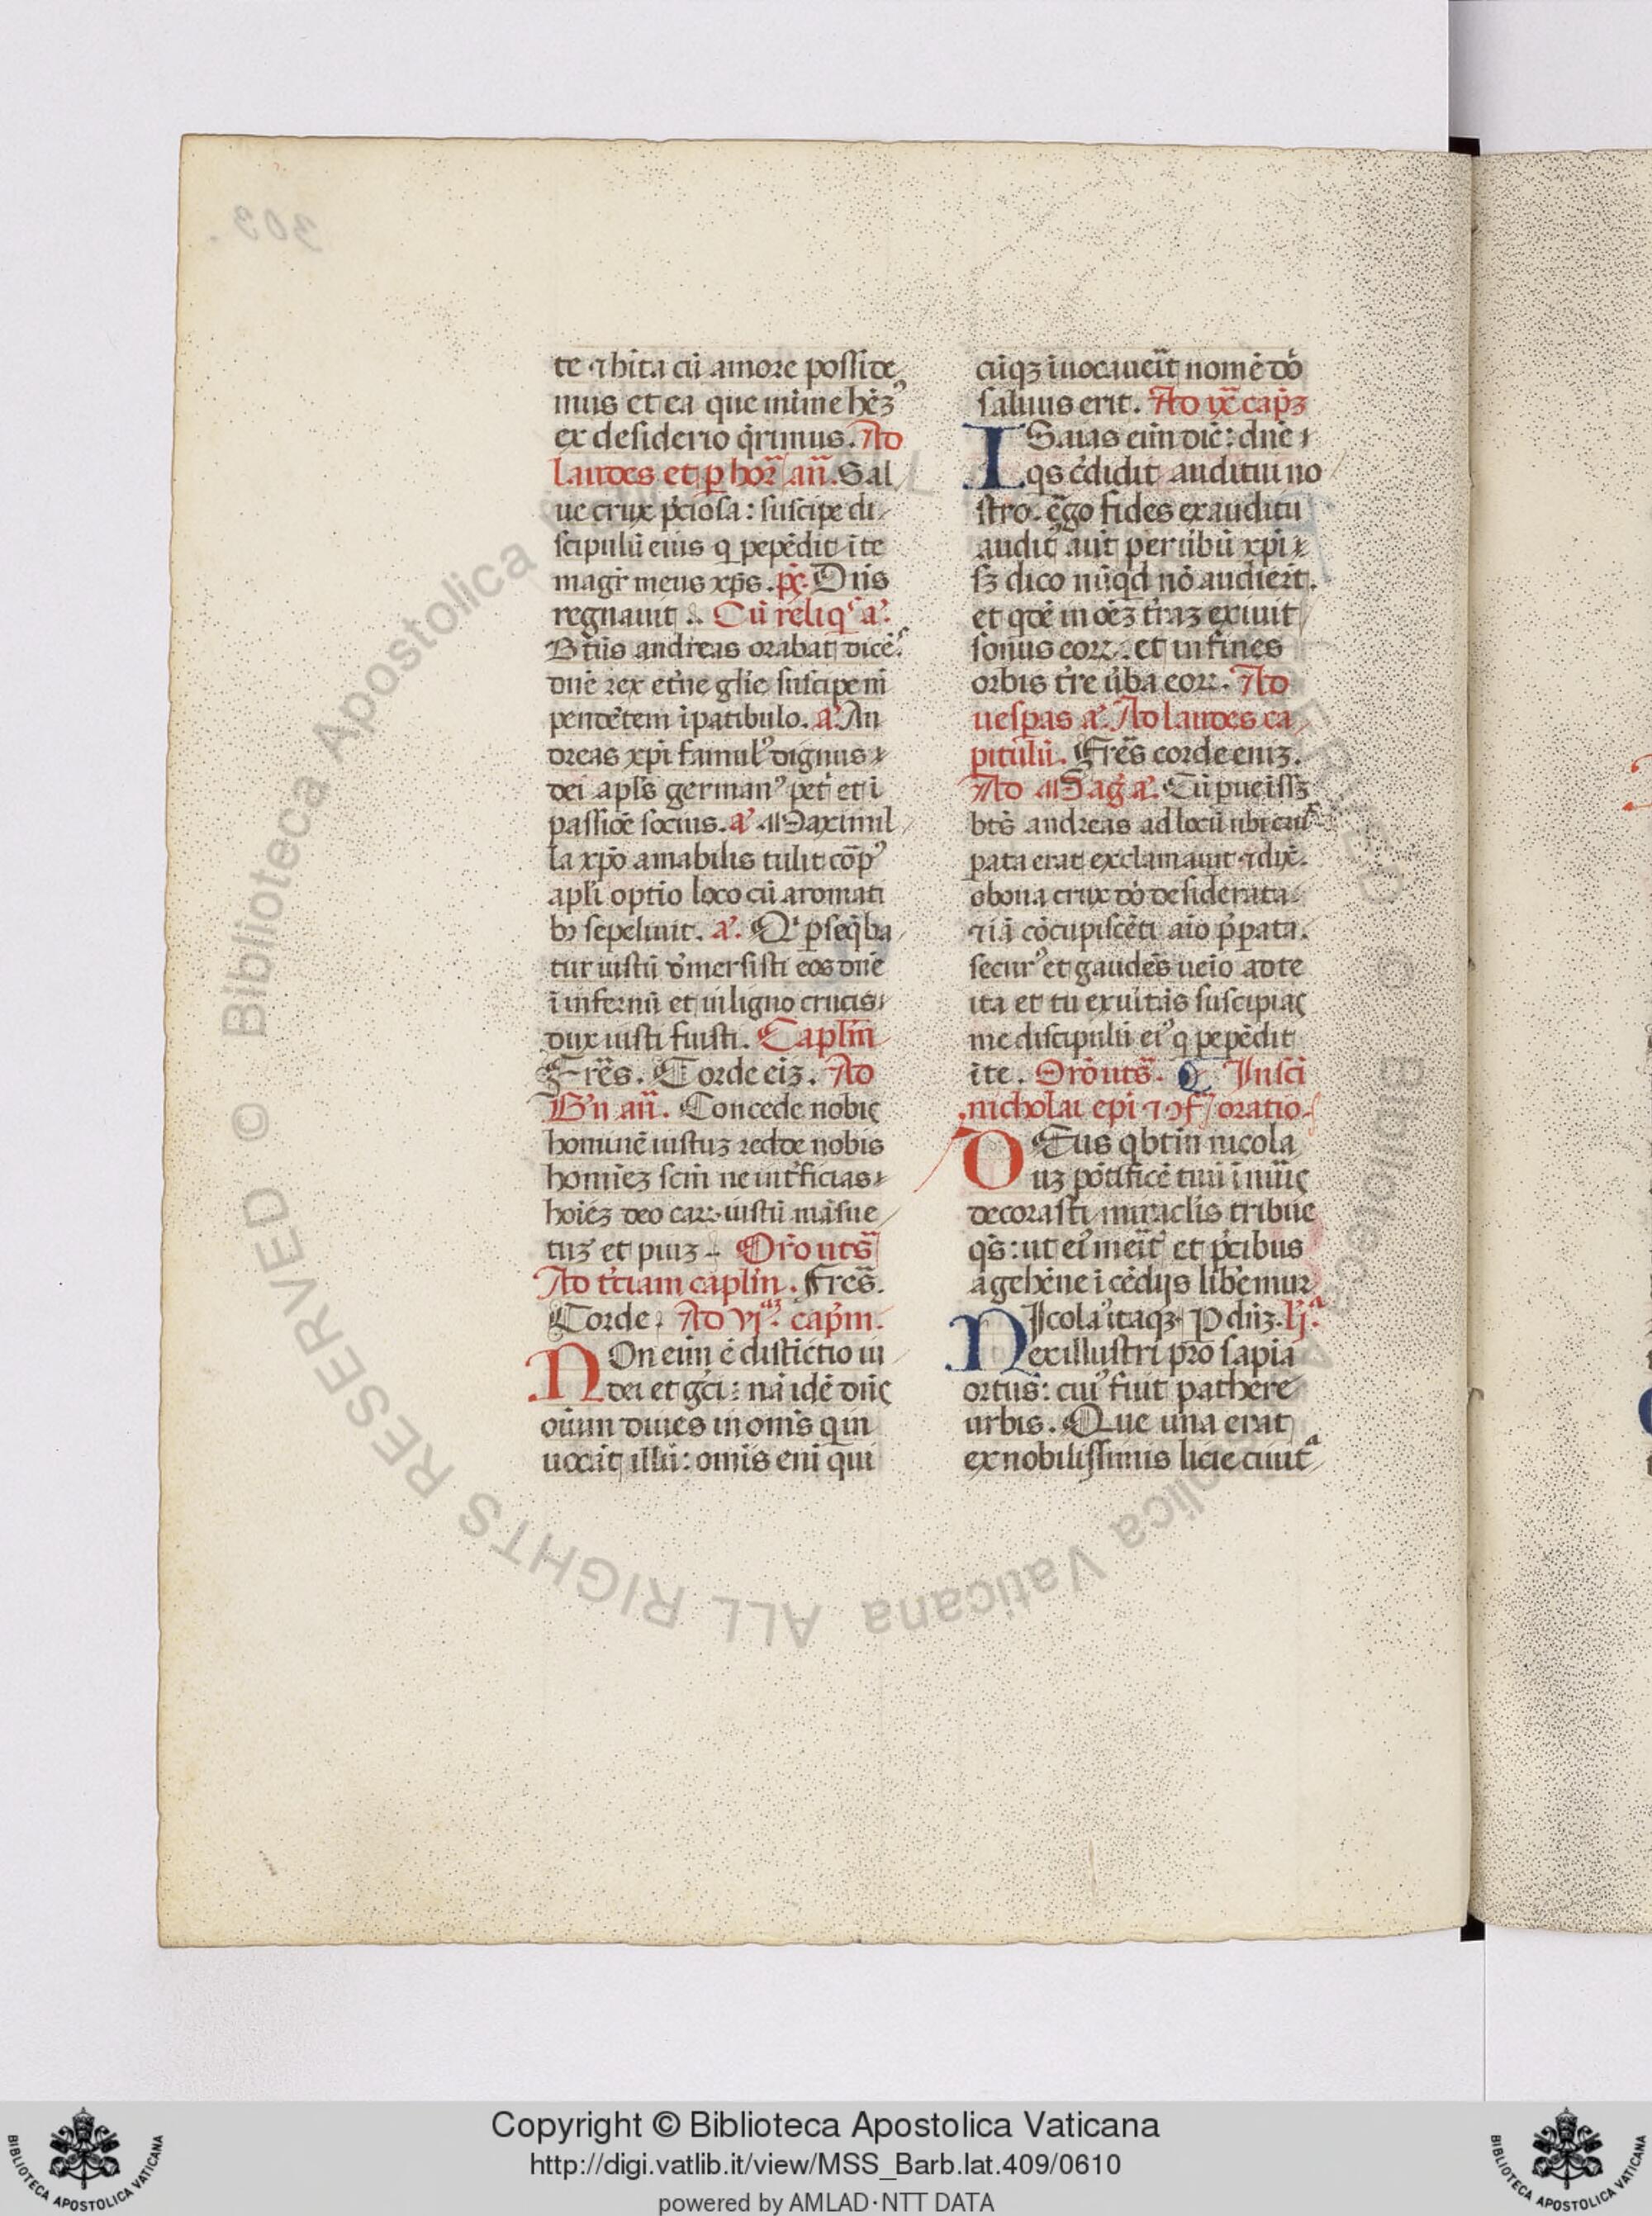 303.
te ⁊ hita cū amore posside
mus et ea que minime hēꝫ
ex desiderio q̄rimus. Ad
laudes et p hor̄ an̄. Sal
ue crux p̄ciosa: suscipe di
scipulū eius q pepēdit ī te
magr̄ meus xp̄s. p̄s. Dn̄s
regnauit. Cū reliqˢ aˀ.
Btūs andreas orabat dicēˢ
dn̄e rex et̄ne gl̄ie suscipe m̄
pendētem ī patibulo. aˀ. An
dreas xp̄i famulˀ dignus
dei apl̄s germanˀ pet̄ et ī
passiōe socius. aˀ. Maximil
la xp̄o amabilis tulit cōpˀ
apl̄i optīo loco cū aromati
bꝫ sepeliuit. aˀ. Qⁱ pseq̄ba
tur iustū d̄mersisti eos dn̄e
ī infernū et in ligno crucis
dux iusti fuisti. Caplm̄
Frēs. Corde eiꝫ. Ad
Bn̄ an̄. Concede nobis
hominē iustuꝫ redde nobis
homīeꝫ scm̄ ne int̄ficias
hoiēꝫ deo carꝫ iustū māsue
tuꝫ et piuꝫ. Oro uts̄
Ad t̄ciam caplm̄. Frēs.
Corde. Ad vjᵃᵐ. capm̄.
NOn eim̄ ē distīctio iu
dei et gc̄i: nā idē dn̄s
oīum diues in om̄s qui
uocāt illū: omīs eni qui
cūqꝫ īuocaueīt nomē dō
saluus erit. Ad ix̄ cap̄ꝫ
ISaias eim̄ dic̄: dn̄e
qs c̄didit auditui no
stro. ego fides ex auditu
audit̄ aūt per ūbū xp̄i
sꝫ dico nūqd nō audier̄t.
et qdē in oēꝫ t̄raꝫ exiuit
sonus eoꝝ. et in fines
orbis t̄re ūba eoꝝ. Ad
uesp̄as aˀ. Ad laudes ca
pitulū. Frēs corde eniꝫ.
Ad Maḡ aˀ. Cū pueīssꝫ
bt̄s andreas ad locū ubi crux
pata erat exclamauit ⁊ dix̄.
o bona crux dō desiderata
⁊ iā cōcupiscēti aīo p̄pata.
securˀ et gaudēs ueīo ad te
ita et tu exultās suscipias
me discipulū eiˀ q pepēdit
ī te. Orō uts̄. In sci
nicholai epi ⁊ ɔf oratio.
DEus q btm̄ nicola
uꝫ pōtificē tuū īnūis
decorasti miraclis tribue
qs̄: ut eiˀ meīt̄ et p̄cibus
a gehēne īcēdijs lib̄emur
NIcolaˀ itaqꝫ. P diīꝫ. lj.ᵃ
ex illustri pro sapia
ortus: cuiˀ fuit pathere
urbis. Que una erat
ex nobilissimis licie ciuitᵃ
© Biblioteca Apostolica Vaticana ALL RIGHTS RESERVED
Copyright © Biblioteca Apostolica Vaticana
http://digi.vatlib.it/view/MSS_Barb.lat.409/0610
powered by AMLAD·NTT DATA
BIBLIOTECA APOSTOLICA VATICANA
BIBLIOTECA APOSTOLICA VATICANA